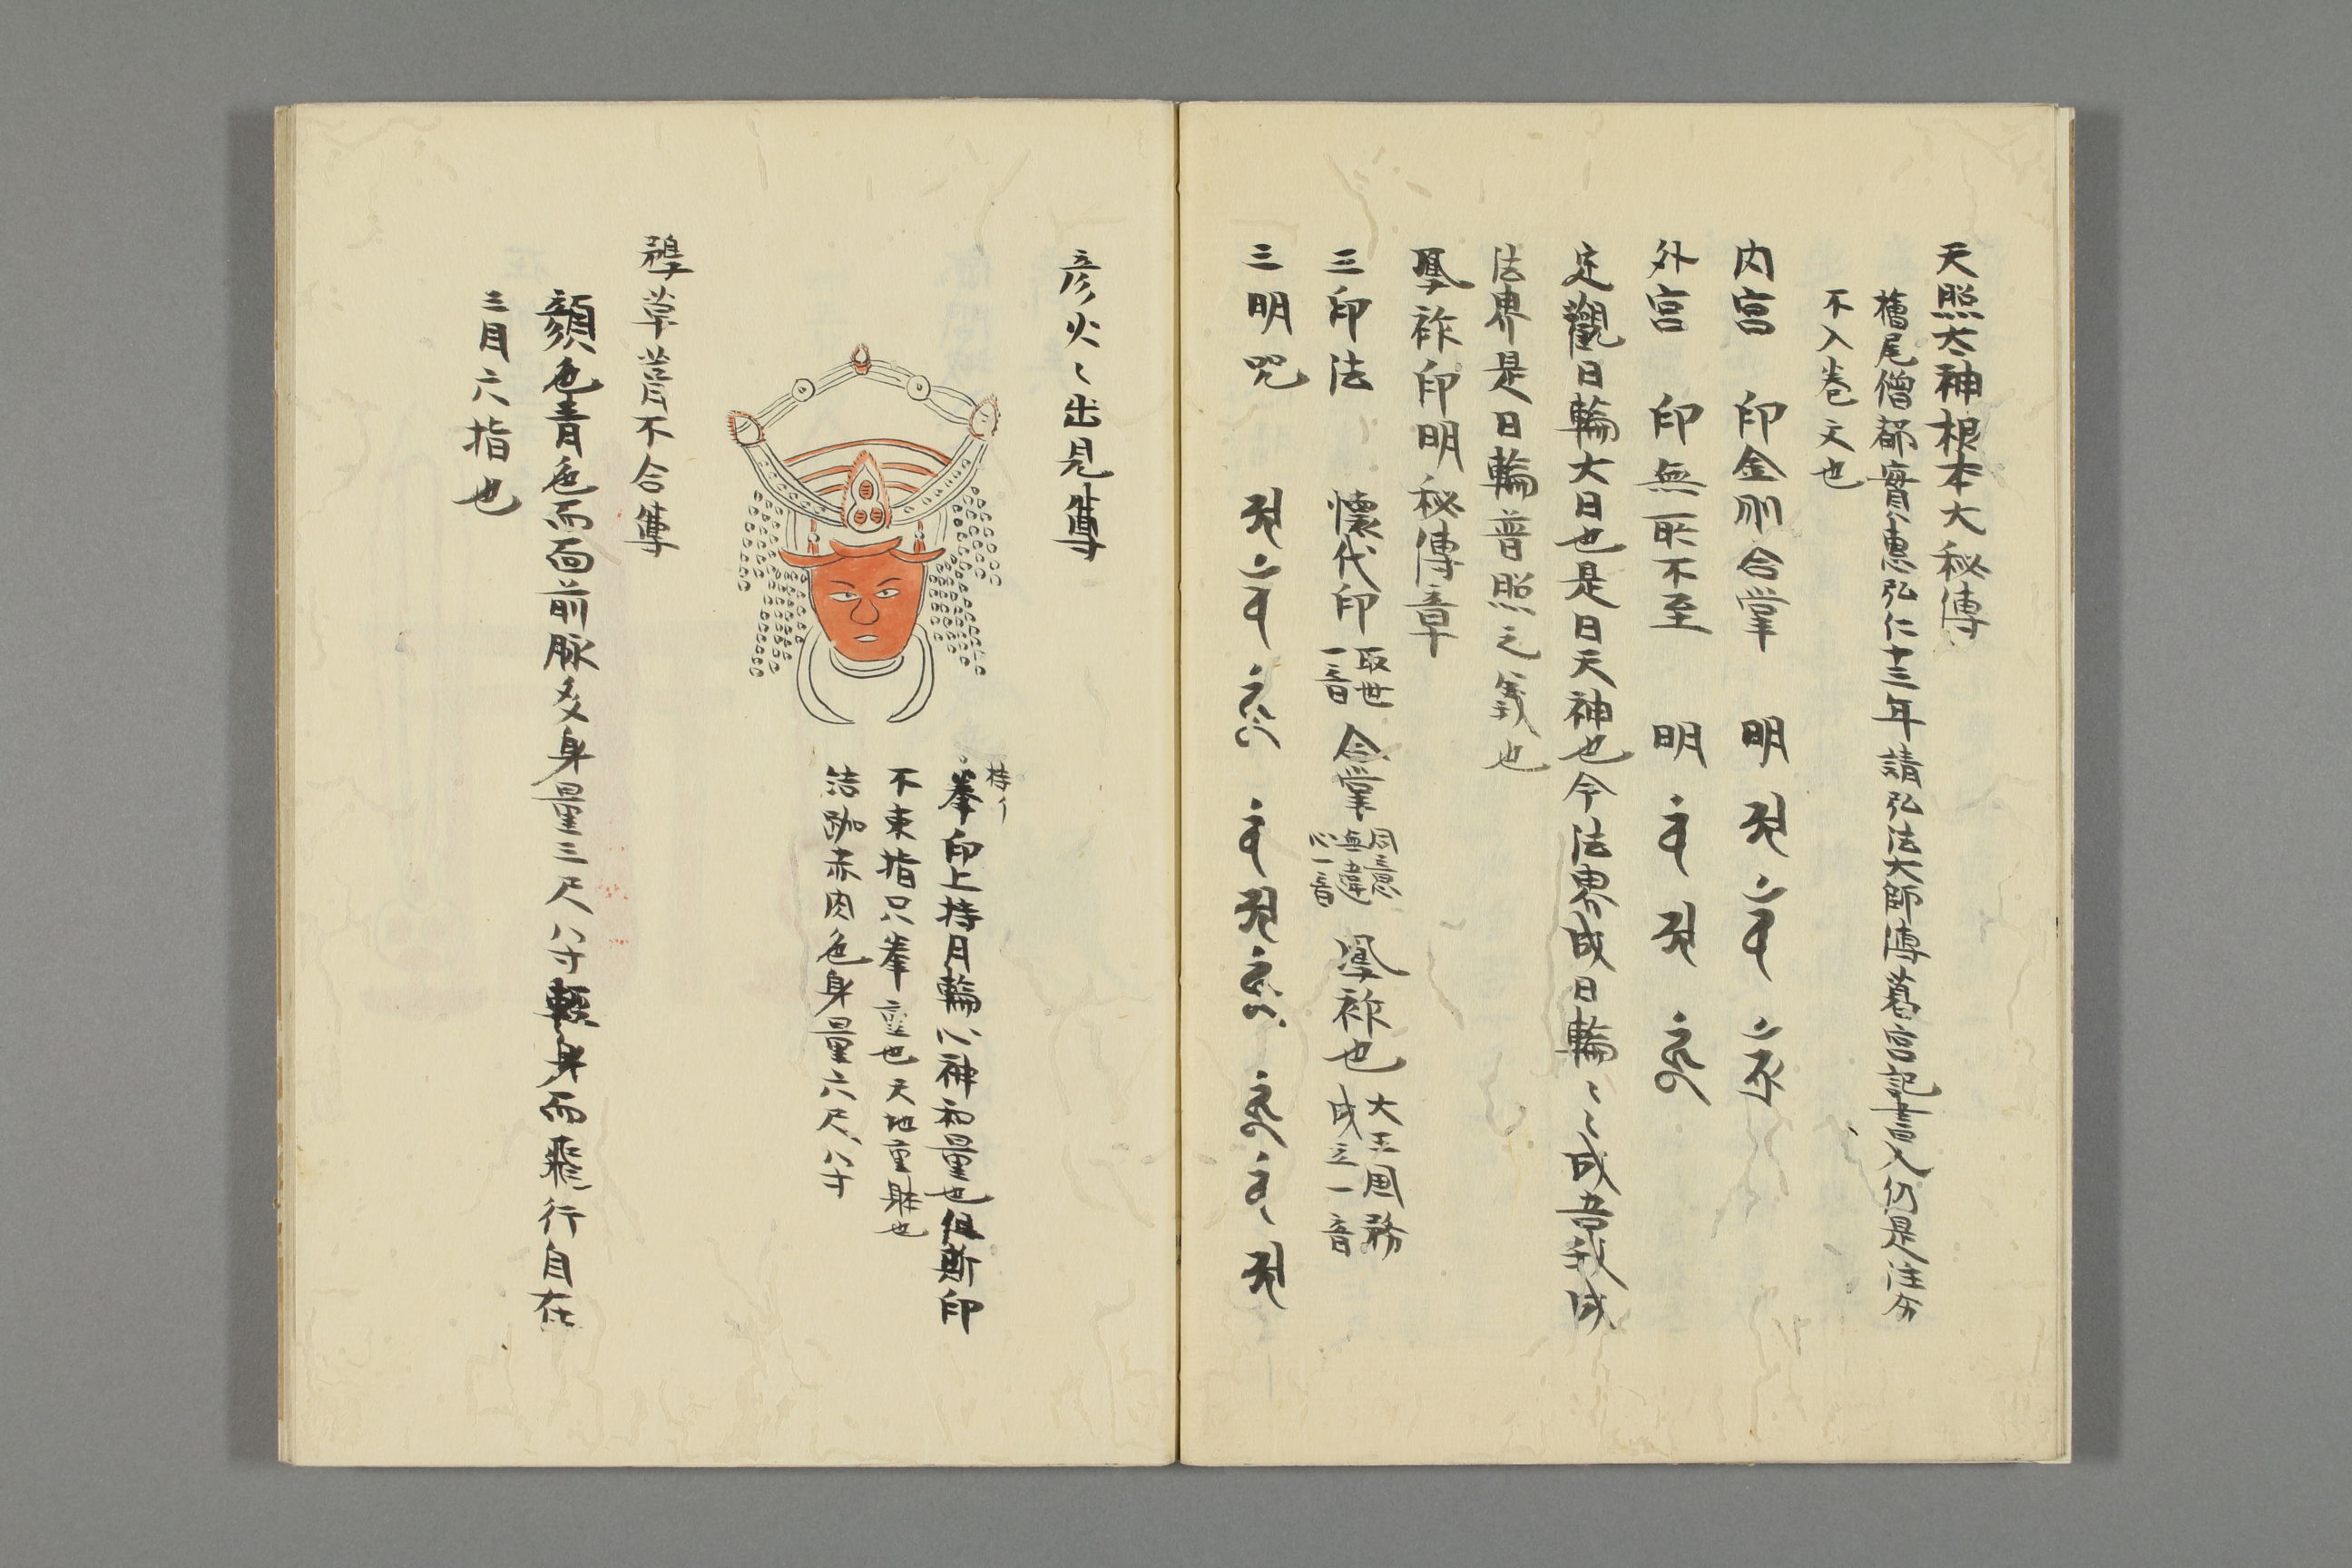 天照太神根本大秘傳
檜尾僧都實惠弘仁十三年請弘法大師傳葛宮記書入仍是注分
不入巻文也
内宮　印金剛合掌　明
外宮　印無所不至　明
定觀日輪大日也是日天神也今法界成日輪〻〻成吾我成
法界是日輪普照之義也
鳳祚印明秘傳章
三印法　懐代印　取世一音　合掌　同意無違心一音　鳳祚也　大王国務成立一音
三明呪
彦火〻出見尊
持イ
拳印上持月輪以神初量也但斯印
不束指只拳童也天地童躰也
結跏赤肉色身量六尺八寸
鸅草葺不合尊
顔色青色而面前脉多身量三尺八寸軽身而飛行自在
三目六指也